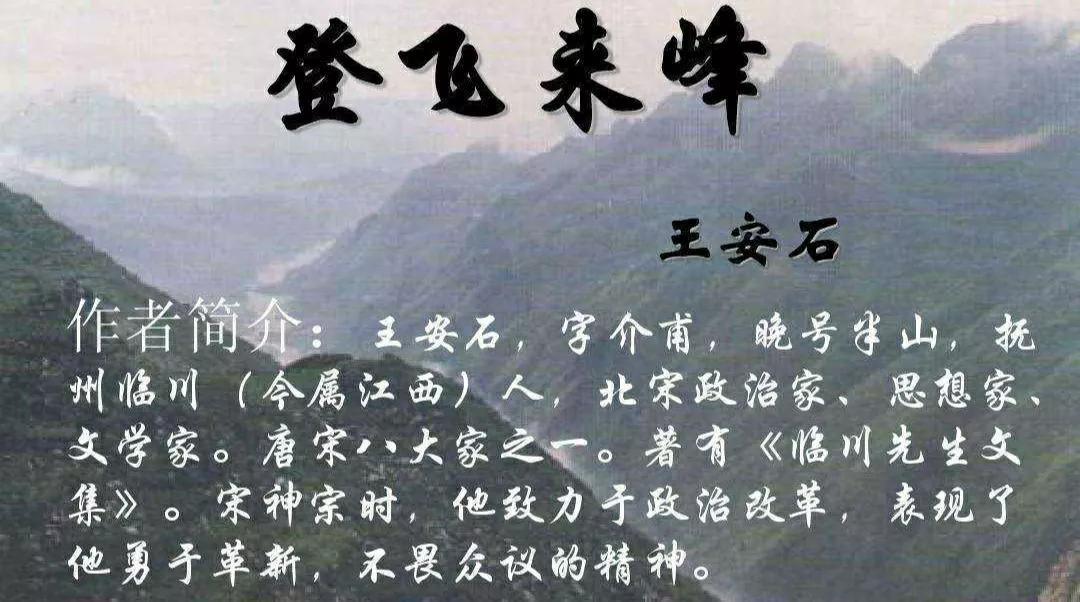 登飞来峰
王安石
作者简介：王安石，字介甫，晚号半山，抚
州临川（今属江西）人，北宋政治家、思想家、
文学家。唐宋八大家之一。著有《临川先生文
集》。宋神宗时，他致力于政治改革，表现了
他勇于革新，不畏众议的精神。